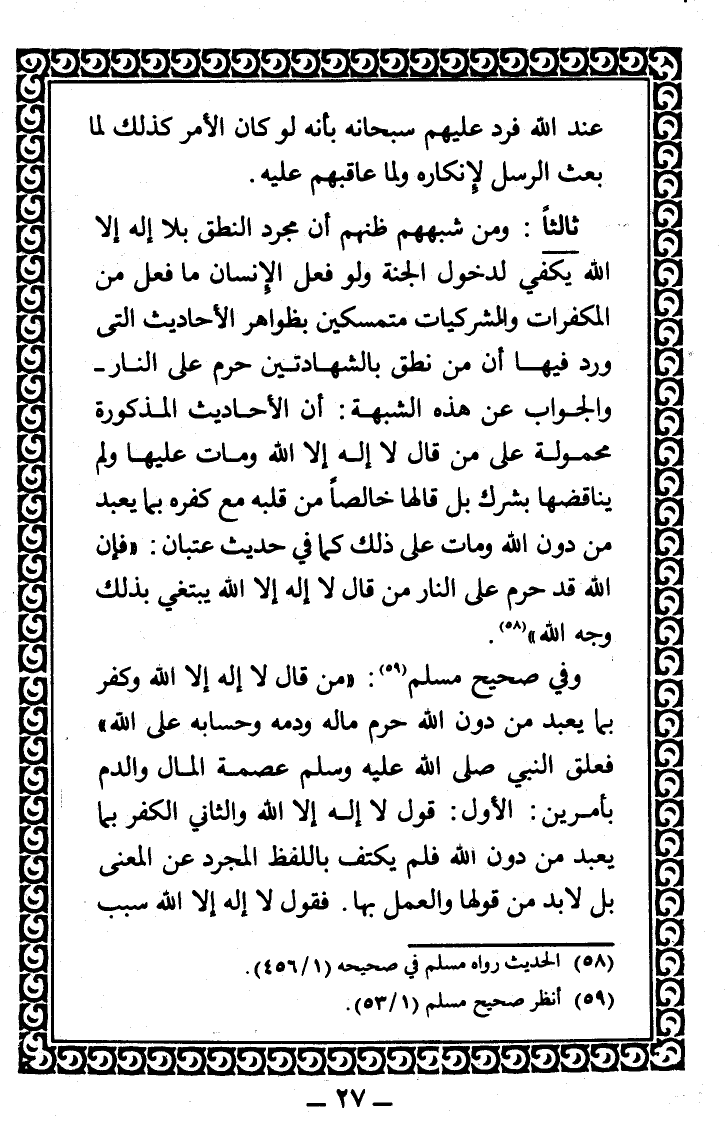 عند الله فرد عليهم سبحانه بأنه لو كان الأمر كذلك لما
بعث الرسل لإنكاره ولما عاقبهم عليه .
ثالثاً : ومن شبههم ظنهم أن مجرد النطق بلا إله إلا
الله يكفي لدخول الجنة ولو فعل الإنسان ما فعل من
المكفرات والمشركيات متمسكين بظواهر الأحاديث التى
ورد فيهـا أن من نطق بالشهادتـين حرم على النار ـ
والجـواب عن هذه الشبهـة : أن الأحاديث المـذكورة
محمـولـة على من قال لا إلـه إلا الله ومـات عليهـا ولم
يناقضها بشرك بل قالها خالصاً من قلبه مع كفره بما يعبد
من دون الله ومات على ذلك كما في حديث عتبان : «فإن
الله قد حرم على النار من قال لا إله إلا الله يبتغي بذلك
وجه الله»(٥٨) .
وفي صحيح مسلم(٥٩) : «من قال لا إله إلا الله وكفر
بما يعبد من دون الله حرم ماله ودمه وحسابه على الله»
فعلق النبي صلى الله عليه وسلم عصمـة المـال والدم
بأمـرين : الأول : قول لا إلـه إلا الله والثاني الكفر بما
يعبد من دون الله فلم يكتف باللفظ المجرد عن المعنى
بل لابد من قولها والعمل بها . فقول لا إله إلا الله سبب
(٥٨) الحديث رواه مسلم في صحيحه (٤٥٦/١) .
(٥٩) أنظر صحيح مسلم (٥٣/١) .
ـ ٢٧ ـ